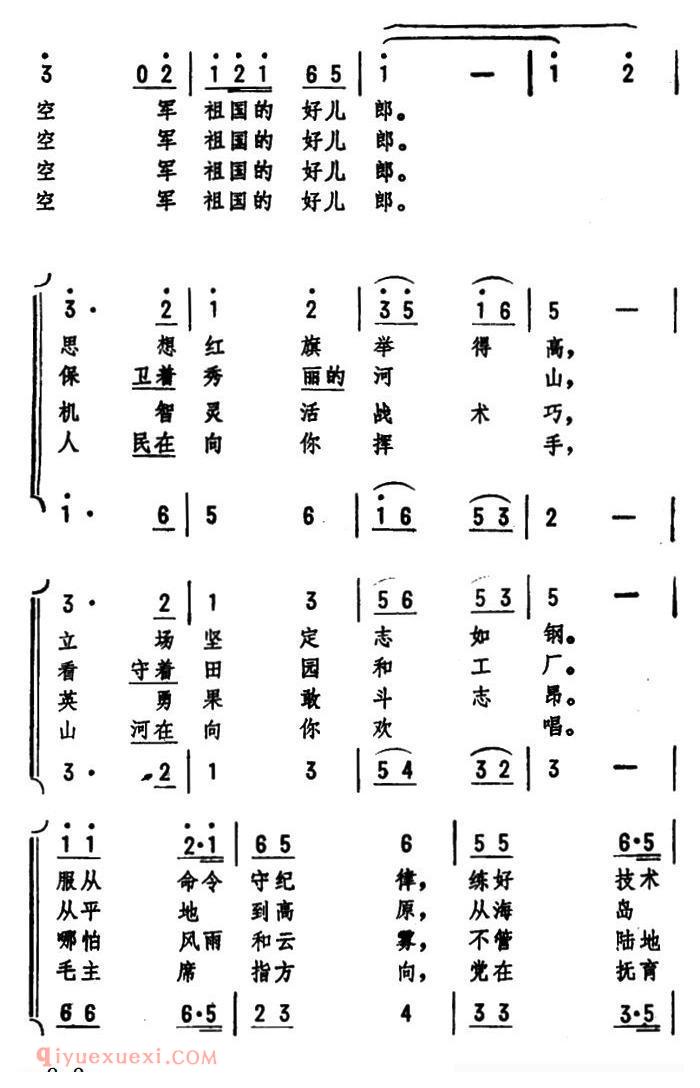 3 0 2 | 1 2 1 6 5 | 1 — | 1 2 |
空 军 祖国的 好儿 郎。
空 军 祖国的 好儿 郎。
空 军 祖国的 好儿 郎。
空 军 祖国的 好儿 郎。
3· 2 | 1 2 | 3 5 1 6 | 5 — |
思 想红 旗 举 得 高,
保 卫着秀 丽的河 山,
机 智灵 活 战 术 巧,
人 民在向 你 挥 手,
1· 6 | 5 6 | 1 6 5 3 | 2 — |
3· 2 | 1 3 | 5 6 5 3 | 5 — |
立 场坚 定 志 如 钢。
看 守着田 园 和 工 厂。
英 勇果 敢 斗 志 昂。
山 河在向 你 欢 唱。
3· 2 | 1 3 | 5 4 3 2 | 3 — |
1 1 2·1 | 6 5 6 | 5 5 6·5 |
服从 命令 守纪 律, 练好 技术
从平 地 到高 原, 从海 岛
哪怕 风雨 和云 雾, 不管 陆地
毛主 席 指方 向, 党在 抚育
6 6 6·5 | 2 3 4 | 3 3 3·5 |
qiyuexuexi.com(七月学习网)